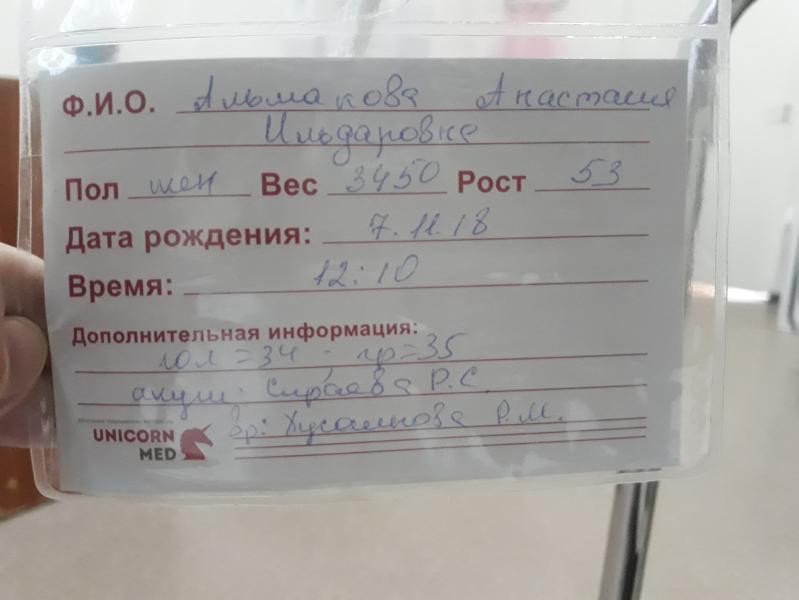 Ф.И.О. Альмакова Анастасия
Ильдаровна
Пол жен Вес 3450 Рост 53
Дата рождения: 7.11.18
Время: 12:10
Дополнительная информация:
гол=34; гр=35
акуш: Сираева Р.С.
вр: Хусаинова Р.М.
UNICORN
MED